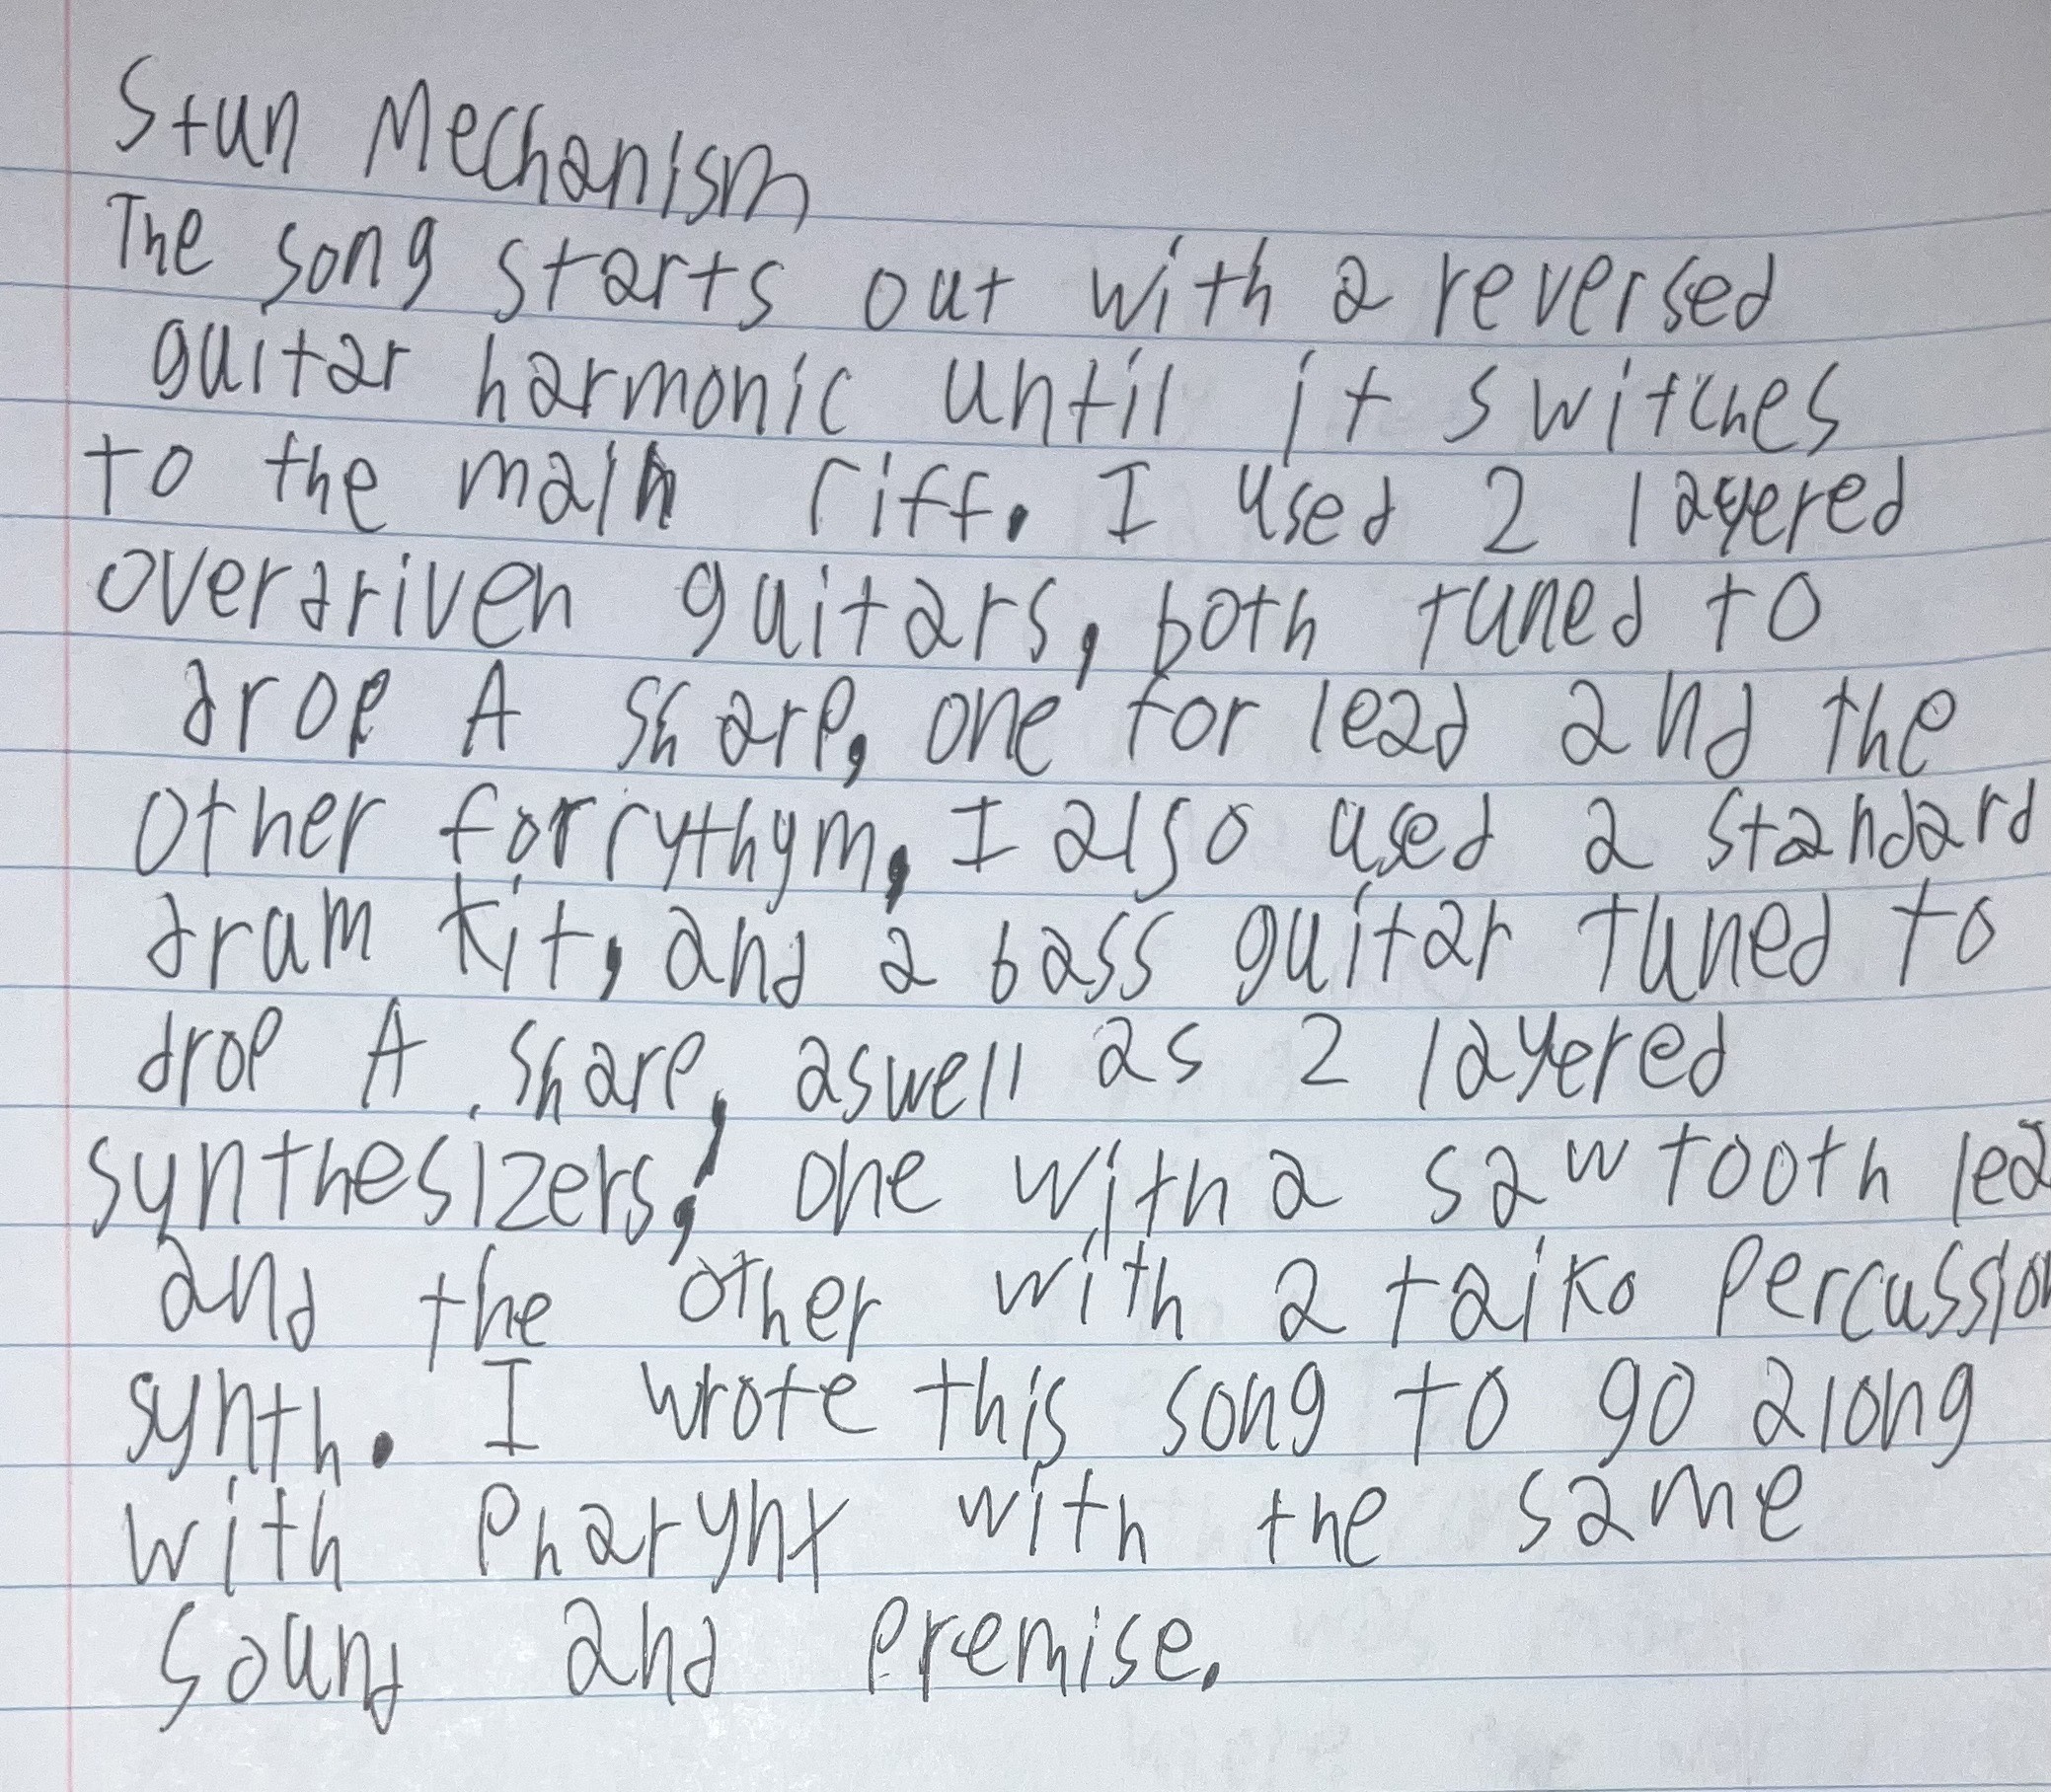 Stun Mechanism
The song starts out with a reversed
guitar harmonic until it switches
to the main riff. I used 2 layered
overdriven guitars, both tuned to
drop A sharp, one for lead and the
other for rythym, I also used a standard
drum kit, and a bass guitar tuned to
drop A sharp, aswell as 2 layered
synthesizers, one with a sawtooth lea
and the other with a taiko percussion
synth. I wrote this song to go along
with Pharynx with the same
sound and premise.